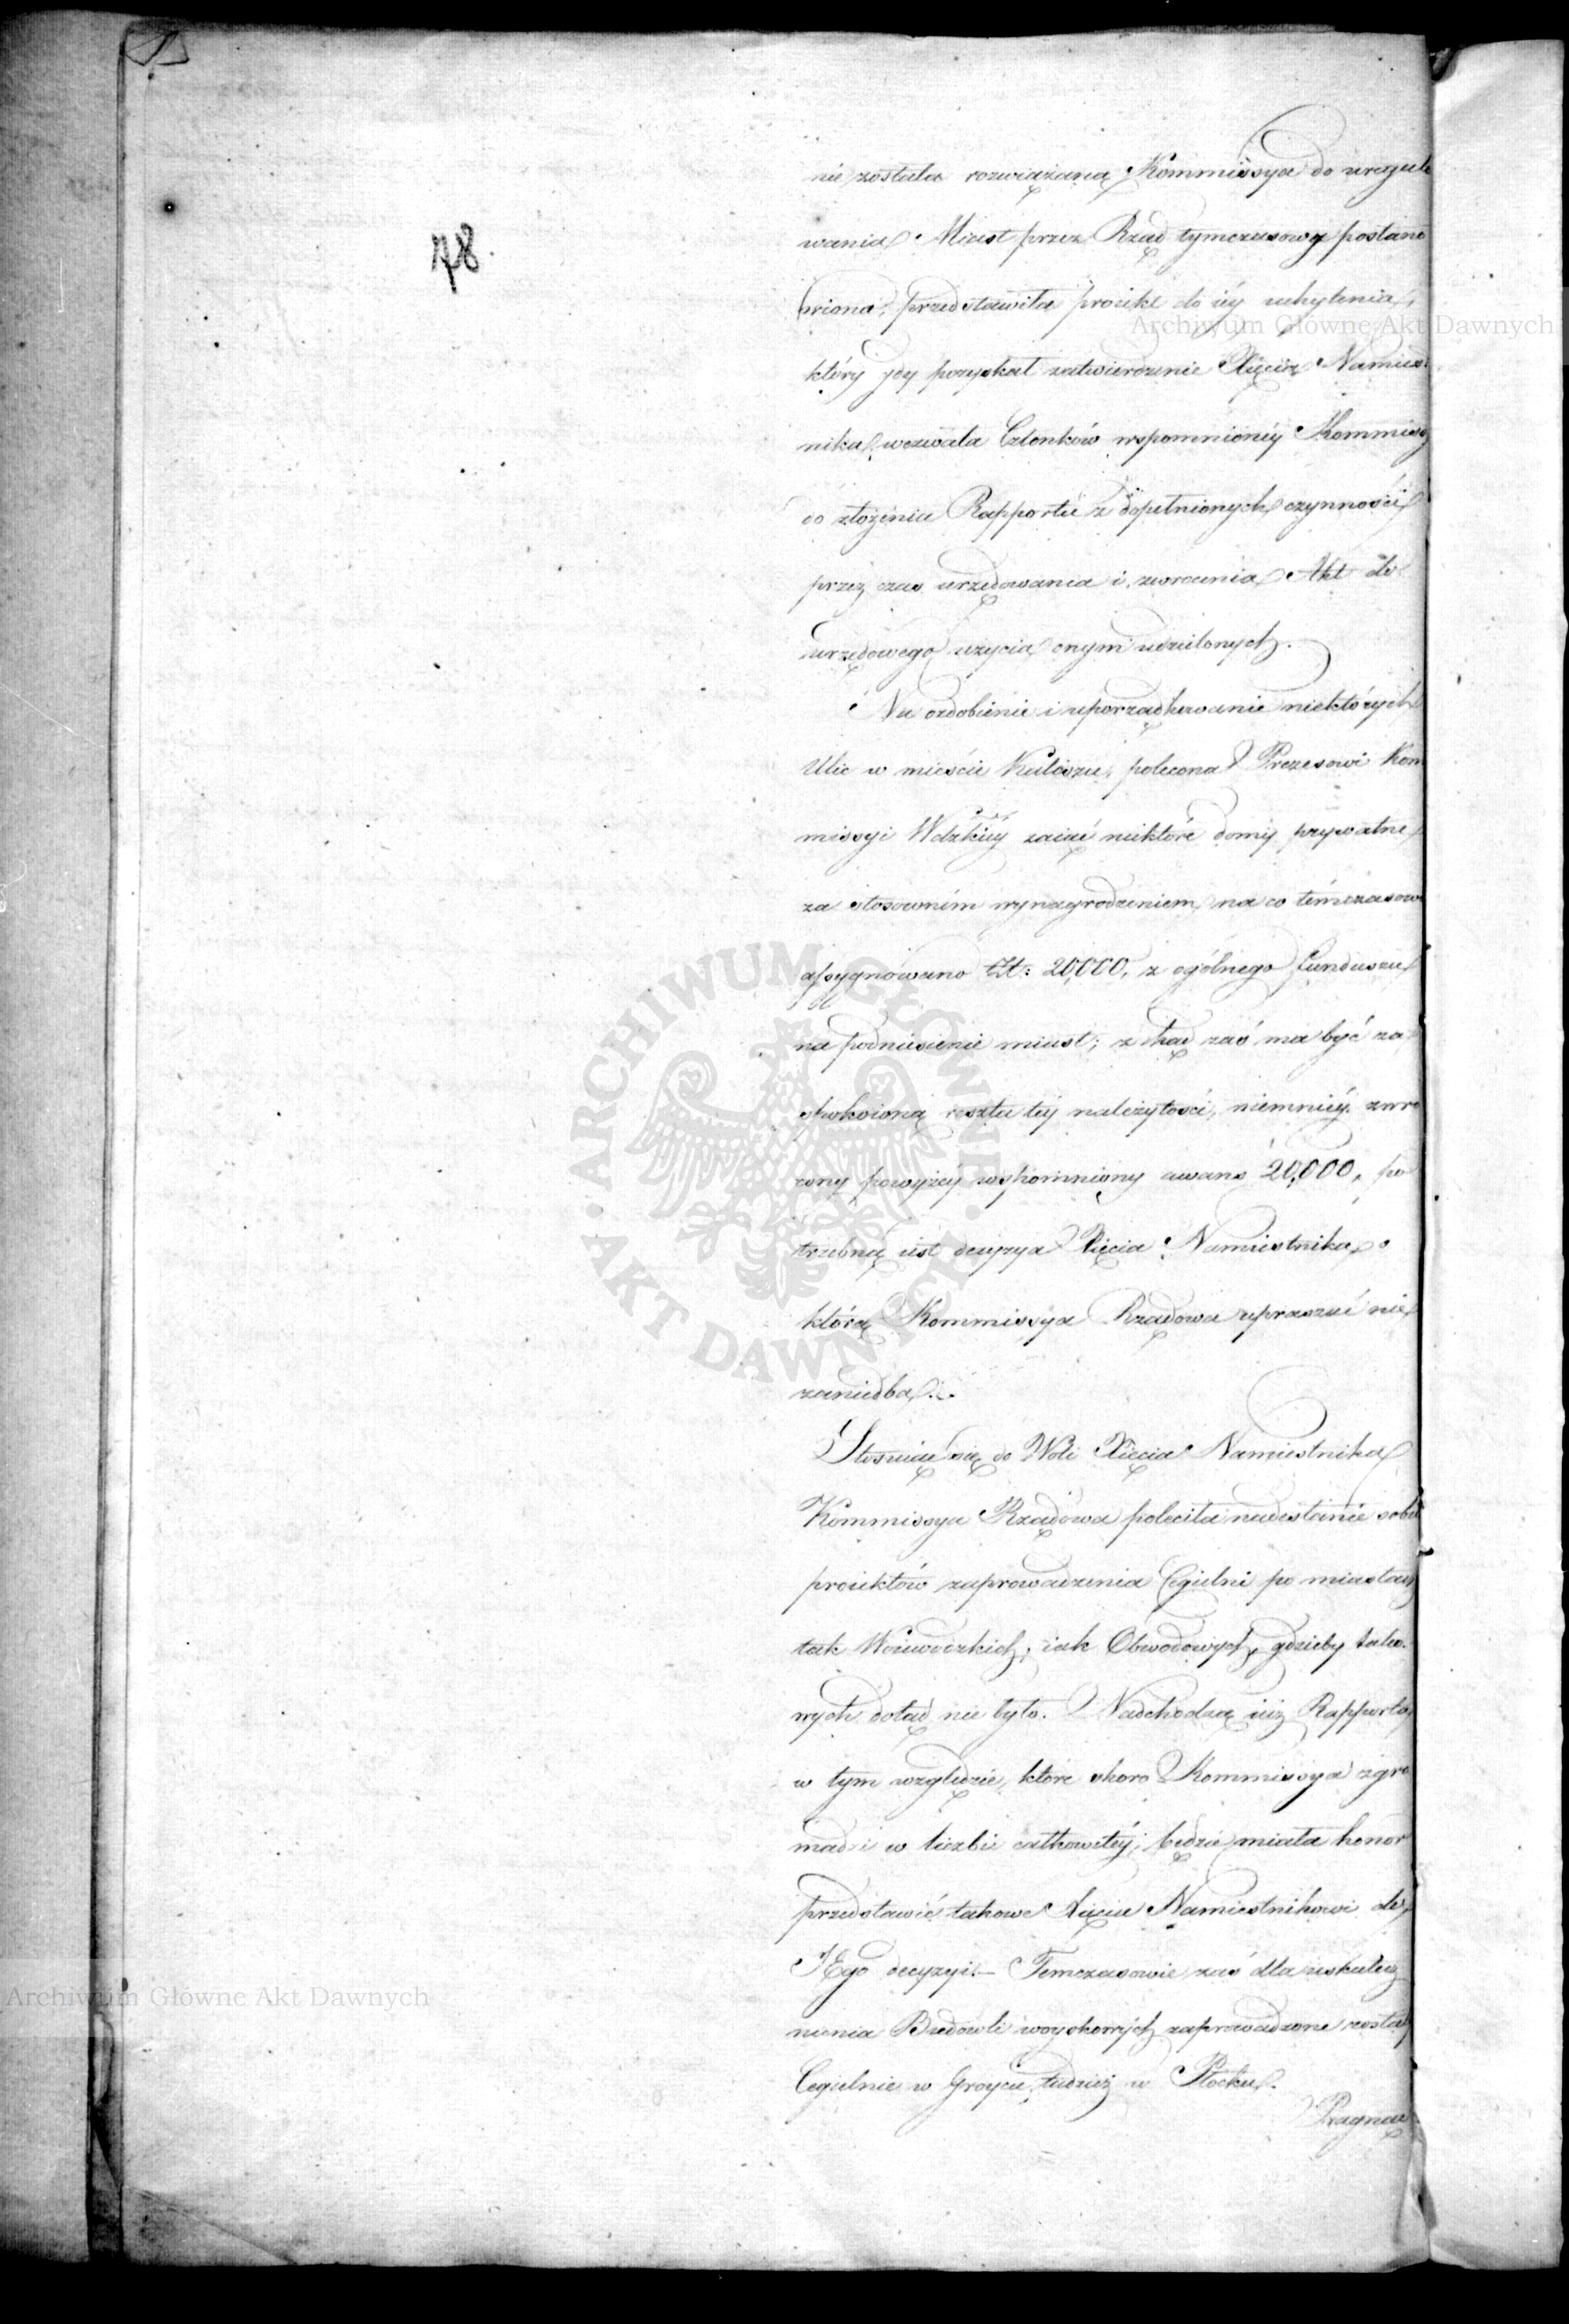 78.
nie została rozwiązaną Kommissya do uregulo
wania Miast przez Rząd tymczasowy postano
wiona, przedstawiła proiekt do iéy uchylenia,
który gdy pozyskał zatwierdzenie Xięcia Namiest
nika, wezwała Członków wspomnionéy Kommissy
do złożenia Rapportu z dopełnionych czynności
przez czas urzędowania i zwrócenia Akt do
urzędowego użycia onym udzielonych.
Na ozdobienie i uporządkowanie niektórych
Ulic w mieście Kaliszu, polecono Prezesowi Kom
missyi Wdzkiéy zaiąć niektóre domy prywatne
za stosowném wynagrodzeniem, na co témczasow
assygnowano Zł: 20,000, z ogólnego funduszu
na podniesienie miast; z kąd zaś ma być za
spokoioną reszta téy należytości, niemniéy zwró
cony powyżéy wspomniony awans 20,000, po
trzebną iest decyzya Xięcia Namiestnika, o
którą Kommissya Rządowa upraszać nie
zaniedba.
Stosuiąc się do Woli Xięcia Namiestnika
Kommissya Rządowa poleciła nadesłanie sobie
proiektów zaprowadzenia Cegielni po miastach
tak Woiewódzkich, iak Obwodowych, gdzieby tako-
wych dotąd nie było. Nadchodzą iuż Rapporta
w tym względzie, które skoro Kommissya zgro
madzi w liczbie całkowitéy, będzie miała honor
przedstawić takowe Xięciu Namiestnikowi do
JEgo decyzyi.— Temczasowie zaś dla uskutecz
nienia Budowli woyskowych zaprowadzone zostały
Cegielnie w Groycu, tudzież w Płocku.
Pragnąc
Archiwum Główne Akt Dawnych
Archiwum Główne Akt Dawnych
ARCHIWUM GŁÓWNE AKT DAWNYCH